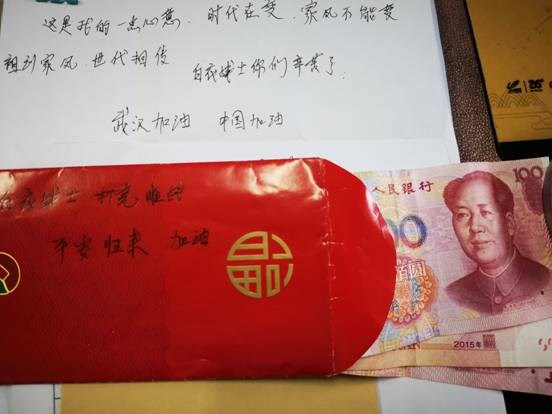 这是我的一点心意，时代在变，家风不能变
祖训家风，世代相传
白衣战士你们辛苦了。
武汉加油 中国加油
白衣战士
平安归来 加油
福
人民银行
100
100
佰圆
2015年